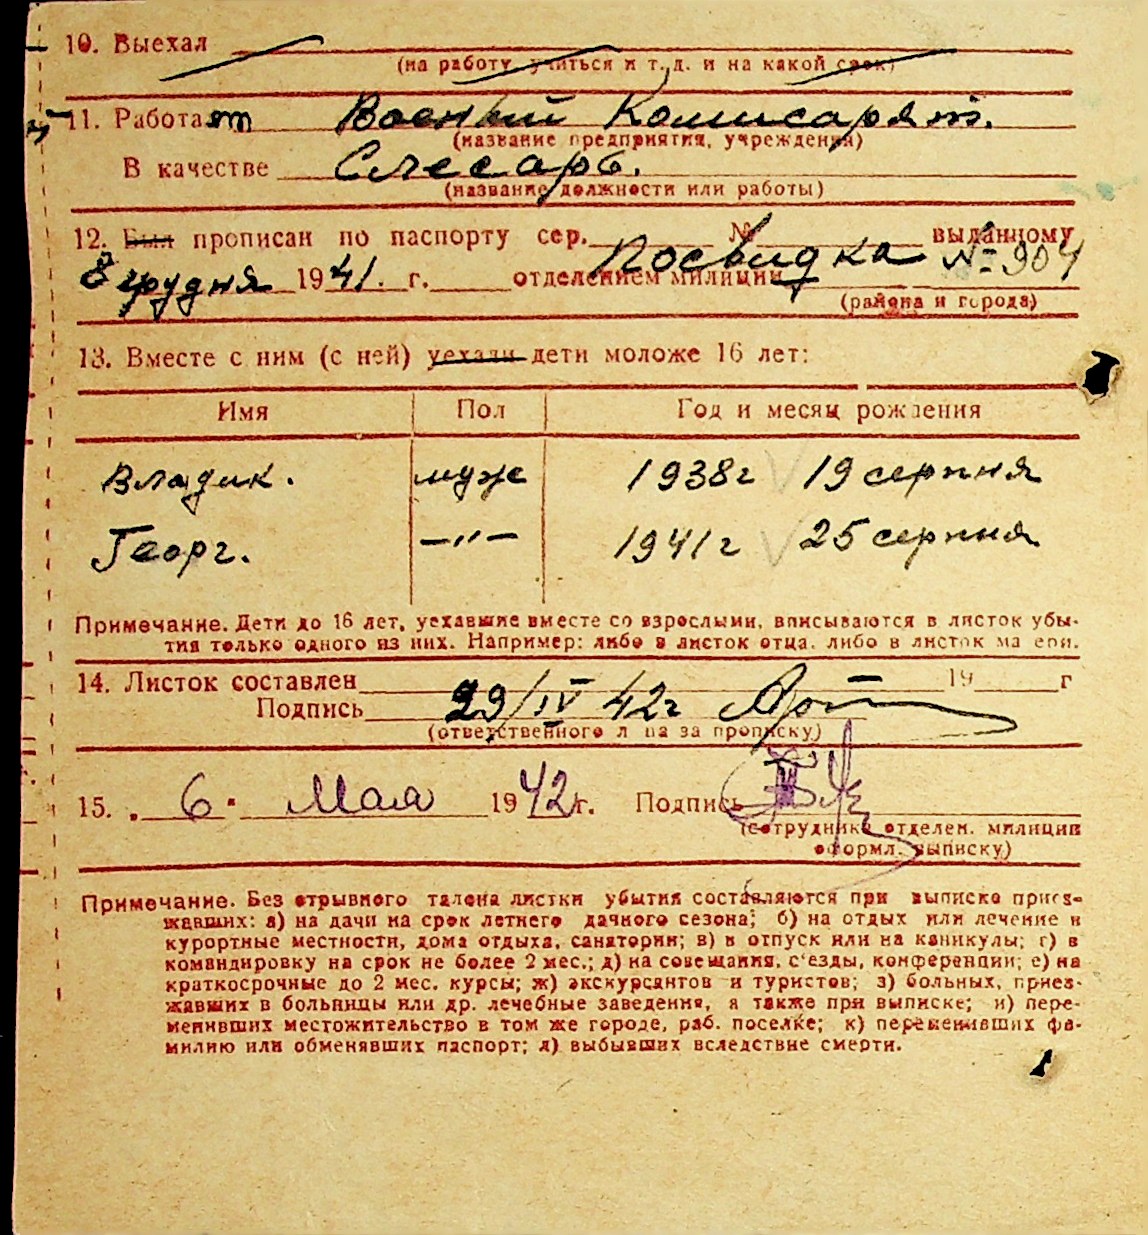 10. Выехал
(на работу, учиться и т. д. и на какой срок)
11. Работает Военый Комисарят.
(название предприятия, учреждения)
В качестве Слесарь.
(название должности или работы)
12. Был прописан по паспорту сер. № выданному
Посвидка № 904
8 грудня 1941. г. отделением милиции
(района и города)
13. Вместе с ним (с ней) уехали дети моложе 16 лет:
Имя Пол Год и месяц рождения
Владик. муж 1938г 19 серпня
Георг. —〃— 1941г 25 серпня
Примечание. Дети до 16 лет, уехавшие вместе со взрослыми, вписываются в листок убы-
тия только одного из них. Например: либо в листок отца, либо в листок ма ери.
14. Листок составлен 19 г
Подпись 29/IV 42г
(ответственного л ца за прописку)
15. 6. Мая 1942г. Подпись
(сотрудника отделен. милиции
оформл. выписку)
Примечание. Без отрывного талона листки убытия составляются при выписке приез-
жавших: а) на дачи на срок летнего дачного сезона; б) на отдых или лечение в
курортные местности, дома отдыха, санатории; в) в отпуск или на каникулы; г) в
командировку на срок не более 2 мес.; д) на совещания, с'езды, конференции; е) на
краткосрочные до 2 мес. курсы; ж) экскурсантов и туристов; з) больных, приез-
жавших в больницы или др. лечебные заведения, а также при выписке; и) пере-
менивших местожительство в том же городе, раб. поселке; к) переменивших фа-
милию или обменявших паспорт; л) выбывших вследствие смерти.